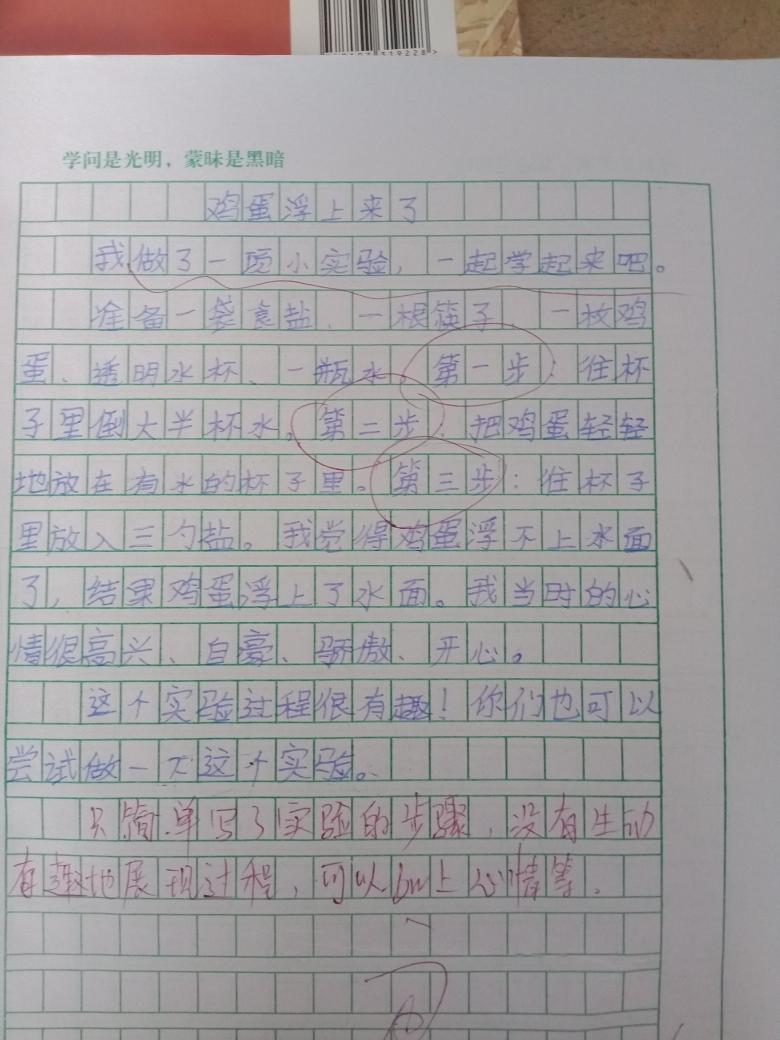 学问是光明，蒙昧是黑暗
鸡蛋浮上来了
我做了一项小实验，一起学起来吧。
准备一袋食盐、一根筷子、一枚鸡
蛋、透明水杯、一瓶水。第一步：往杯
子里倒大半杯水。第二步：把鸡蛋轻轻
地放在有水的杯子里。第三步：往杯子
里放入三勺盐。我觉得鸡蛋浮不上水面
了，结果鸡蛋浮上了水面。我当时的心
情很高兴、自豪、骄傲、开心。
这个实验过程很有趣！你们也可以
尝试做一下这个实验。
只简单写了实验的步骤，没有生动
有趣地展现过程，可以加上心情等。